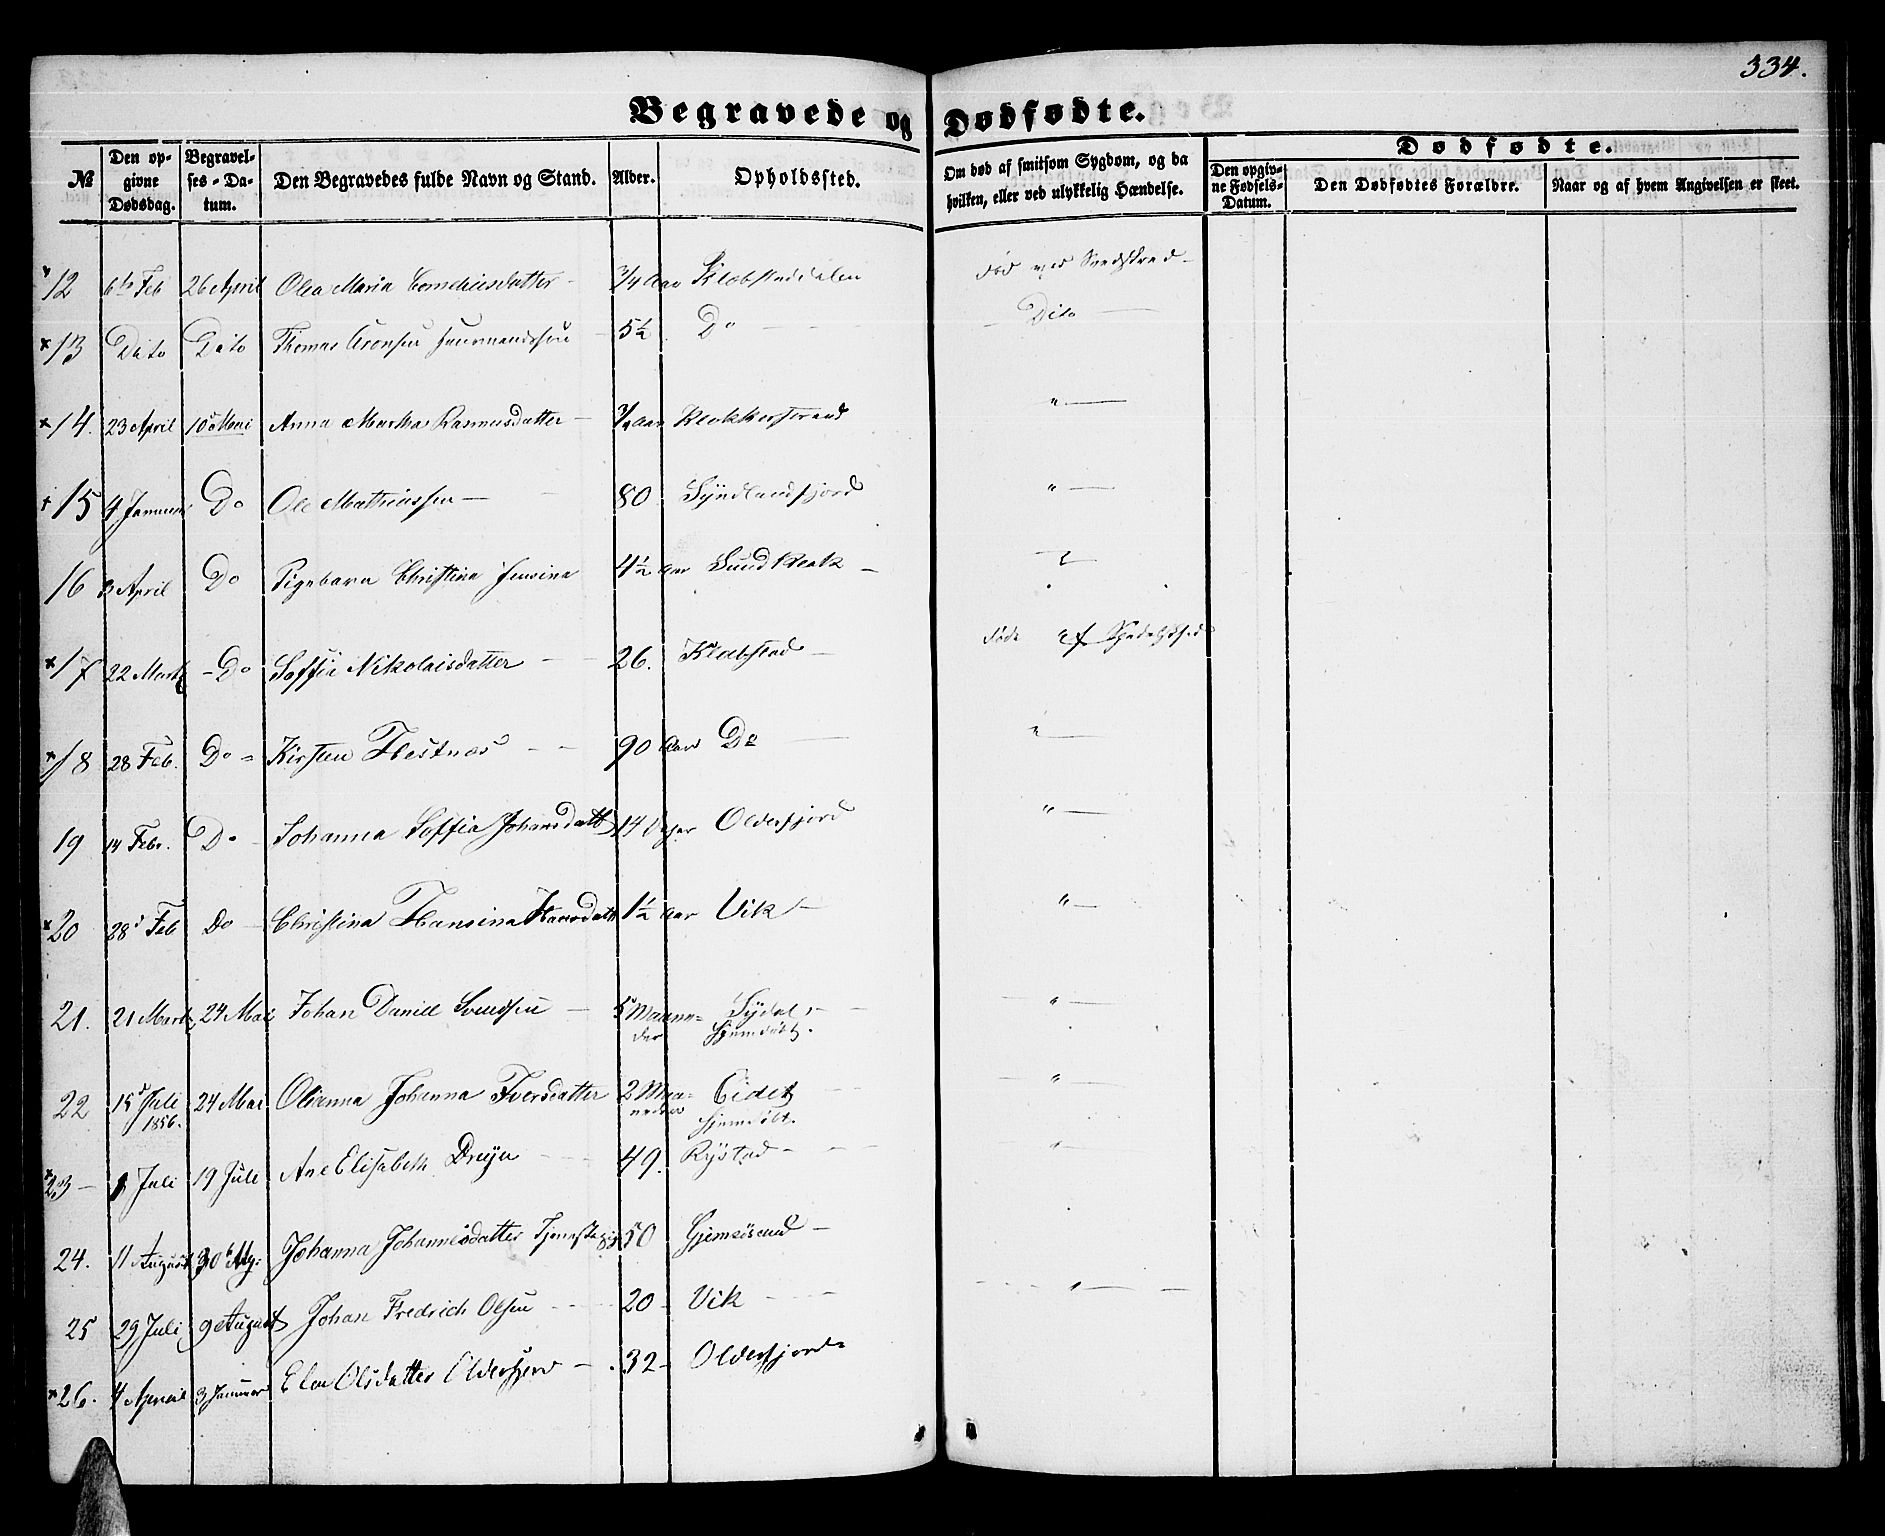 334.
Begravede og Dødfødte.
№
Den opgivne Dødsdag.
Begravelses-Datum.
Den Begravedes fulde Navn og Stand.
Alder.
Opholdssted.
Om død af smitsom Sygdom, og da hvilken, eller ved ulykkelig Hændelse.
Dødfødte.
Den opgivne Fødsels-Datum.
Den Dødfødtes Forældre.
Naar og af hvem Angivelsen er skeet.
12 6te Feb 26 April Olea Maria Corneliusdatter 3/4 Aar død ved
x 13 Dito Dito Thomas 5½ Do Dito
x 14. 23 April 10 Mai Anna Martha Rasmusdatter Aar Klokkerstrand "
15 4 Januar Do Ole Mathiassen 80 Syndlandsfjord "
16 3 April Do Pigebarn Christina Jensina 4½ Aar Sundklak "
x 17 22 Marts Do Soffie Nikolaisdatter 26. Klæbstad døde af
x 18 28 Feb. Do Kirsten Hestnæs 90 Aar Do "
19 14 Febr. Do Johanna Soffia Johansdatt 14 Dager Olderfjord "
x 20 28 Feb Do Christina Hansina Hansdatt 1½ Aar Vik "
21. 21 Marts 24 Mai Johan Daniel Svendsen 5 Maaneder Sydal hjemdøbt. "
22 15 Juli 1856. 24 Mai Olianna Johanna Iversdatter 2 Maaneder Eidet hjemdøbt. "
x 23 Juli 19 Juli Ane Elisabeth Dreyer 49. Rystad "
24. 11 August 30 Johanna Johannesdatter 50 Gjemsøsund
25 29 Juli 9 August Johan Fredrich Olsen 20 Vik "
x 26. 4 April 3 Januar Elen Olsdatter Olderfjord 32 Olderfjord